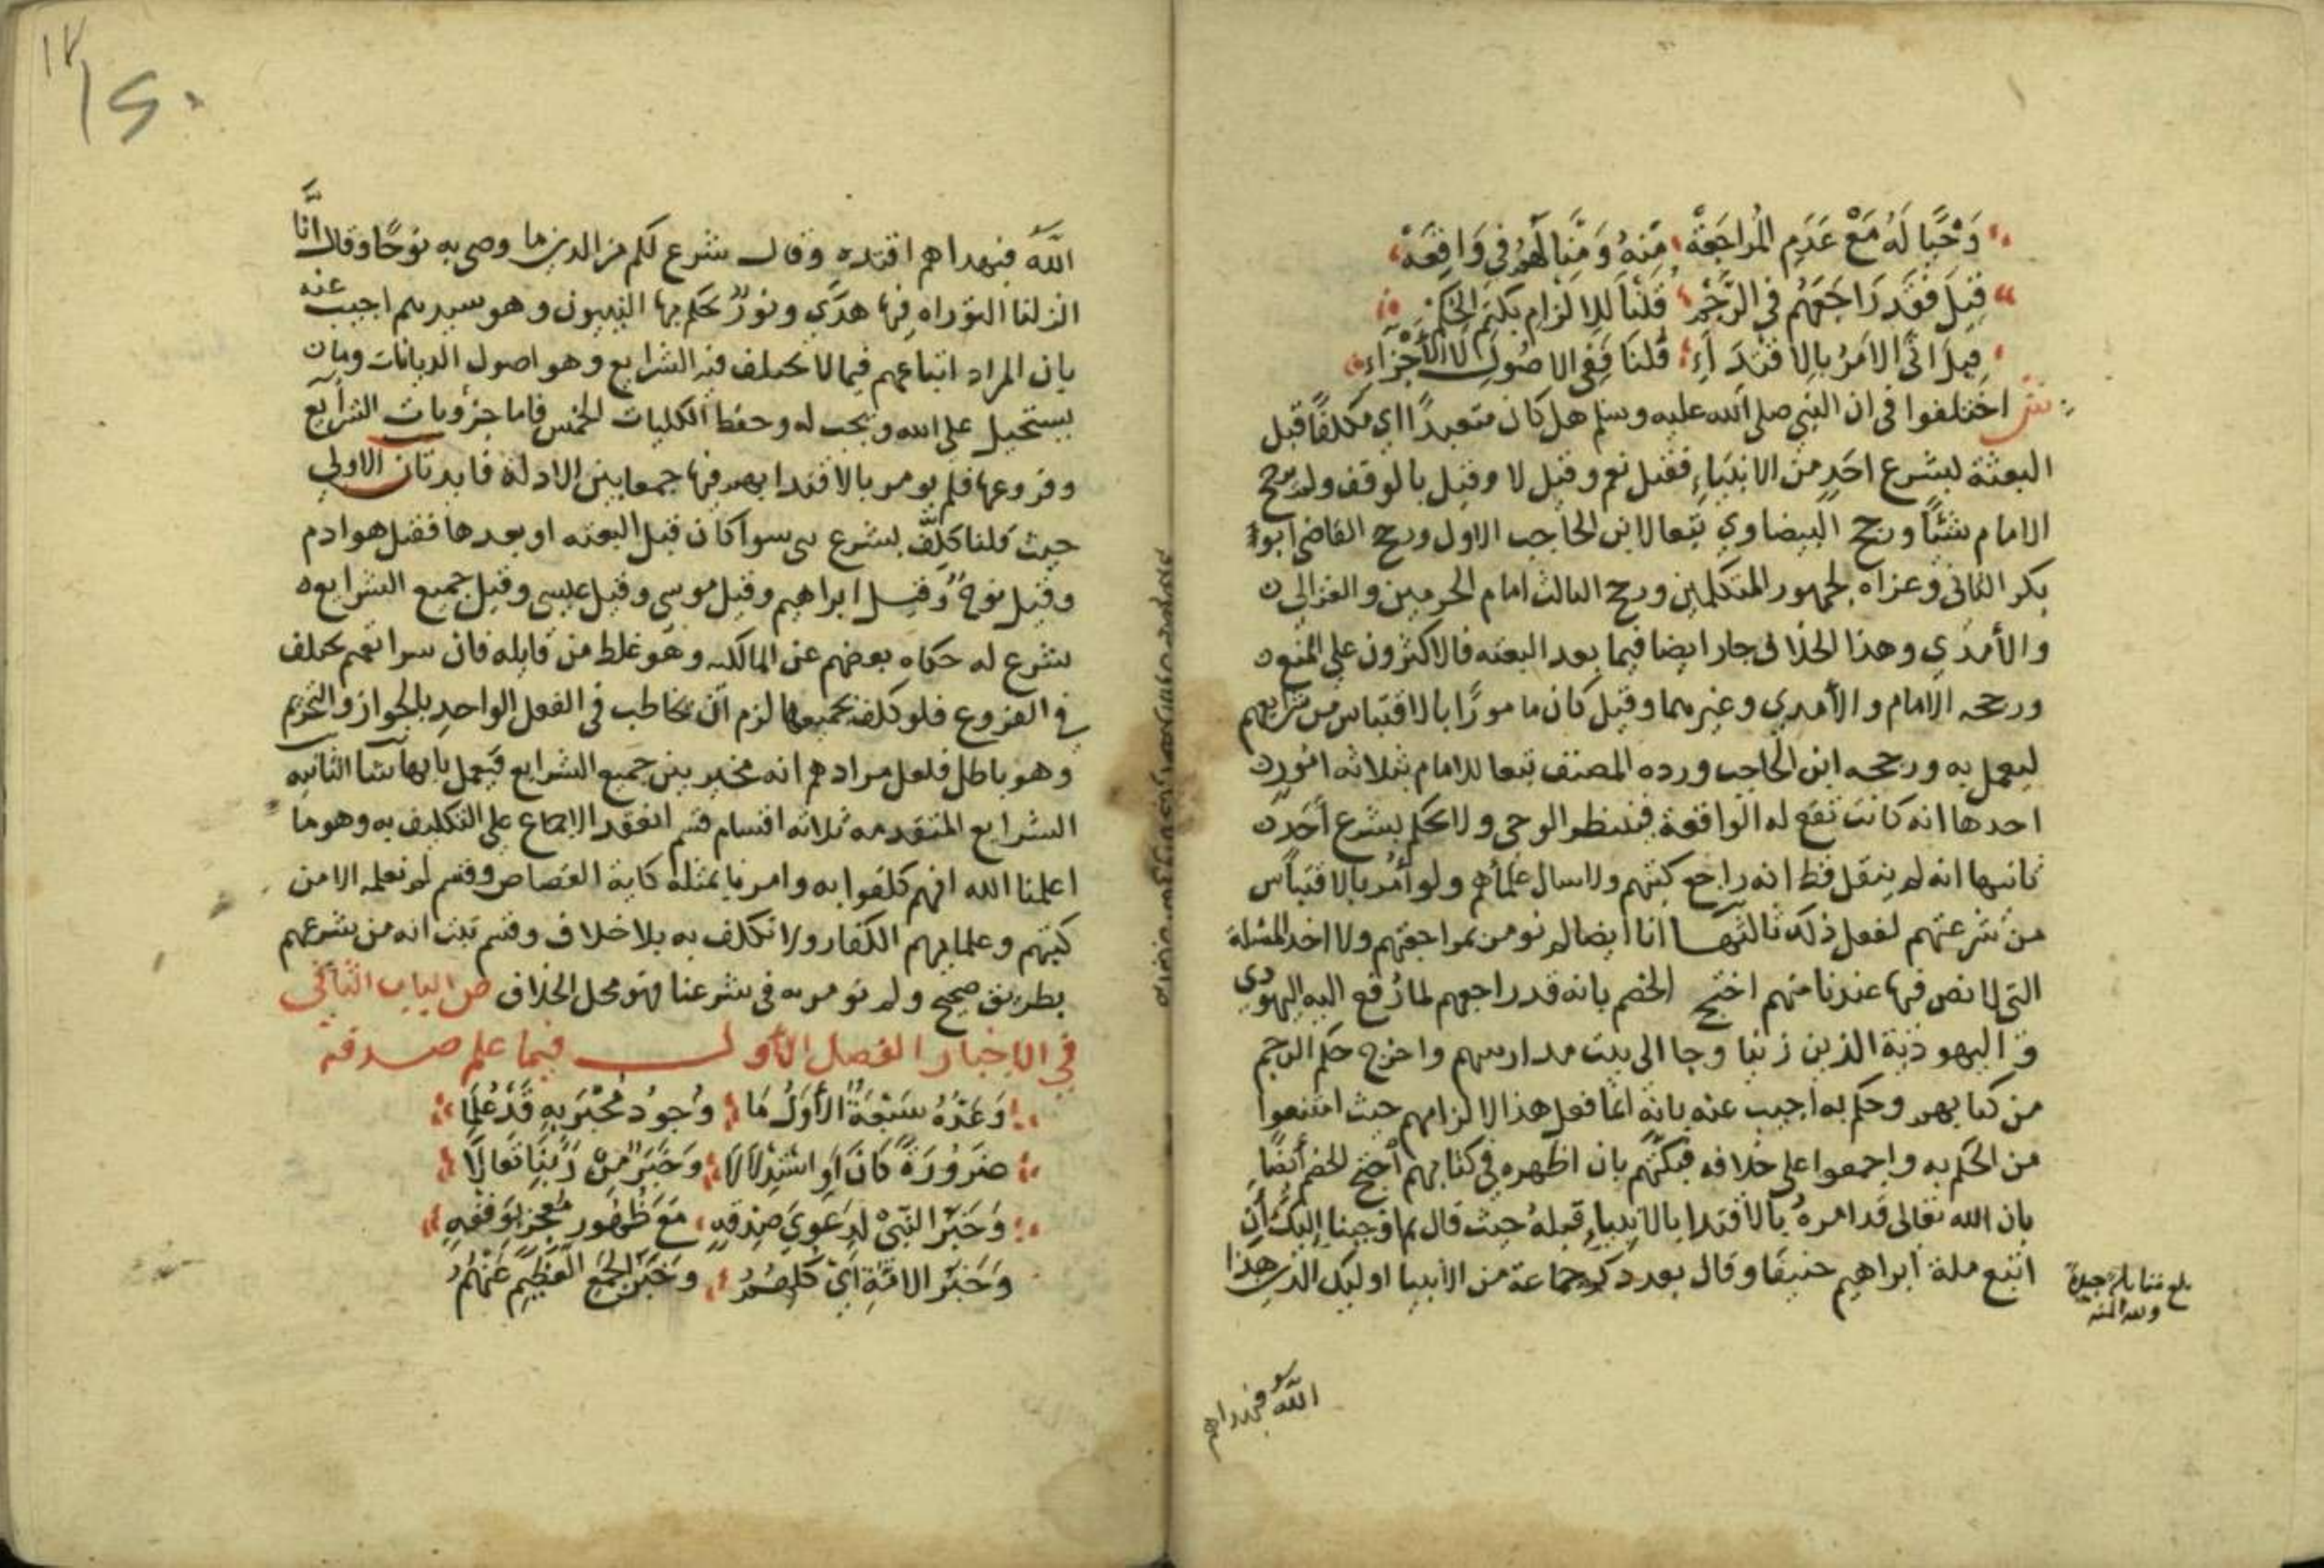 وَحْيًا لَهُ مَعْ عَدَمِ المُراجَعَهْ مِنهُ وَمِنَّا لَهُمُ فى وَاقِعَهْ
قِيلَ فَقَد رَاجَعَهُم فى الرَّجْمِ قُلْنَا لِلِالزَام بكَتمِ الحُكمِ
قِيلَ اتَى الامْرُ بِالِاقْتِدَاءِ قُلنَا فَفِى الاصُولِ لا الاَجْزَآءِ
ش اختلفوا فى ان النبى صلى الله عليه وسلم هل كان متعبدًا اي مكلفًا قبل
البعثة بشرع احَدٍ من الانبياءِ فقيل نعم وقيل لا وقيل بالوقف ولم يرجح
الامام شيئًا ورجح البيضاوي تبعا لابن الحاجب الاول ورجح القاضى ابو
بكر الثانى وعزاه لجمهور المتكلمين ورجح الثالث امام الحرمين والغزالي
والآمدي وهذا الخلاف جار ايضا فيما بعد البعثه فالاكثرون على المنع
ورجحه الامام والآمدي وغيرهما وقيل كان مامورًا بالاقتباس من شرايعهم
ليعمل به ورجحه ابن الحاجب ورده المصنف تبعا للامام بثلاثه امور
احدها انه كانت تقع له الواقعة فينتظر الوحى ولا يحكم بشرع احَد
ثانيها انه لم ينقل قط انه راجع كتبهم ولا سال علمآهم ولو أمر بالاقتباس
من شرعتهم لفعل ذلك ثالثها انا ايضا لم نومن بمراجعتهم ولا اخذ المسئلة
التى لا نص فيها عندنا منهم احتج الخصم بانه قد راجعهم لما رُفع اليه اليهودى
و اليهوديَّة الذين زنيا وجا الى بيت مدارسهم واخرج حكم الرجم
من كتابهم وحكم به اجيب عنه بانه انما فعل هذا لالزامهم حيث امتنعوا
من الحكم به واجمعوا على خلافه فبكتهم بان اظهره فى كتابهم احتج الخصم أيضًا
بان الله تعالى قد امرهُ بالاقتدا بالانبياءِ قبلهُ حيث قال ثم اوحينا إليك أن
اتبع ملة ابراهيم حنيفًا وقال بعد ذكر جماعة من الانبيا اوليك الذين هدا
بلغ مقابلة جيدة
ولله المنه
الله فبهداهم
الله فبهداهم اقتده وقال شرع لكم من الدين ما وصى به نوحًا وقال انَّا
انزلنا التوراه فيها هدًي ونورٌ يحكم بها النبيون وهو سيدهم اجيب عنه
بان المراد اتباعهم فيما لا يختلف فيه الشرايع وهو اصول الديانات وما
يستحيل على الله ويجب له وحفظ الكليات الخمس فاما جزويات الشرآيع
وفروعها فلم يومر بالاقتدا بهم فيها جمعا بين الادلة فايدتان الاولى
حيث قلنا كُلِّف بشرع نبى سوا كان قبل البعثه او بعدها فقيل هو ادم
وقيل نوحٌ وقيل ابراهيم وقيل موسى وقيل عيسى وقيل جميع الشرايع
شرع له حكاه بعضهم عن المالكيه وهو غلط من قايله فان شرايعهم تختلف
فى الفروع فلو كلف بجميعها لزم ان يخاطب فى الفعل الواحدِ بالجواز والتحريم
وهو باطل فلعل مرادهم انه مخير بين جميع الشرايع فيعمل بايها شا الثانيه
الشرايع المتقدمه ثلاثه اقسام قسم انعقد الاجماع على التكليف به وهو ما
اعلمنا الله انهم كلفوا به وامرنا بمثله كاية القصاص وقسم لم نعلمه الا من
كتبهم وعلمايهم الكفار ولا نكلف به بلا خلاف وقسم ثبت انه من شرعهم
بطريق صحيح ولم نومر به فى شرعنا فهو محل الخلاف ص الباب الثانى
فى الاخبار الفصل الأول فيما علم صدقه
وَعَدُّهُ سَبْعَةٌ الأوَّلُ مَا وُجودُ مُخْبَرٍ بِهِ قَدْ عُلِمَا
ضَرُورَةً كَانَ اَوِ اسْتِدْلَالَا وَخَبَرٌ مِنْ رَبِّنَا تَعَالَا
وَخَبَرُ النَّبِىْ لِدَعْوَيَ صِدقِهِ مَعَ ظُهُورِ مُعجِزٍ بِوَفْقِهِ
وَخَبَرُ الامَّةِ اىْ كُلِّهُمُ وَخَبَرُ الجَمْعِ العَظِيْمِ عَنْهُمُ